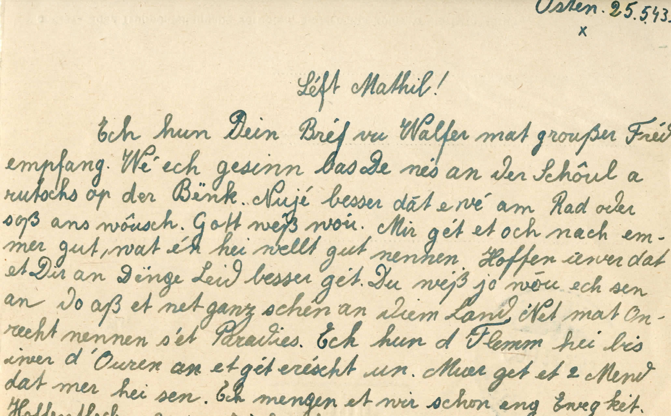 Osten. 25.5.43.
x
Léft Mathil!
Ech hun Dein Bréf vu Walfer mat groußer Fréd
empfang. Wé ech gesinn bas De nés an der Schôul a
rutschs op der Bënk. Nujé besser dât ewé am Rad oder
soß ans wôusch. Gott wéß woû. Mir gét et och nach em-
mer gut, wat é'n hei wëllt gut nennen. Hoffen iwer dat
et Dir an Dënge Leid besser gét. Du wéß jo wôu ech sen
an do aß et net ganz schén an diem Land. Net mat On-
recht nennen s'et Paradies. Ech hun d'Flemm hei bis
iwer d'Ouren an et gét eréscht un. Muer get et 2 Mend
dat mer hei sen. Ech mengen et wir schon eng Ewegkét.
Hoffentlech